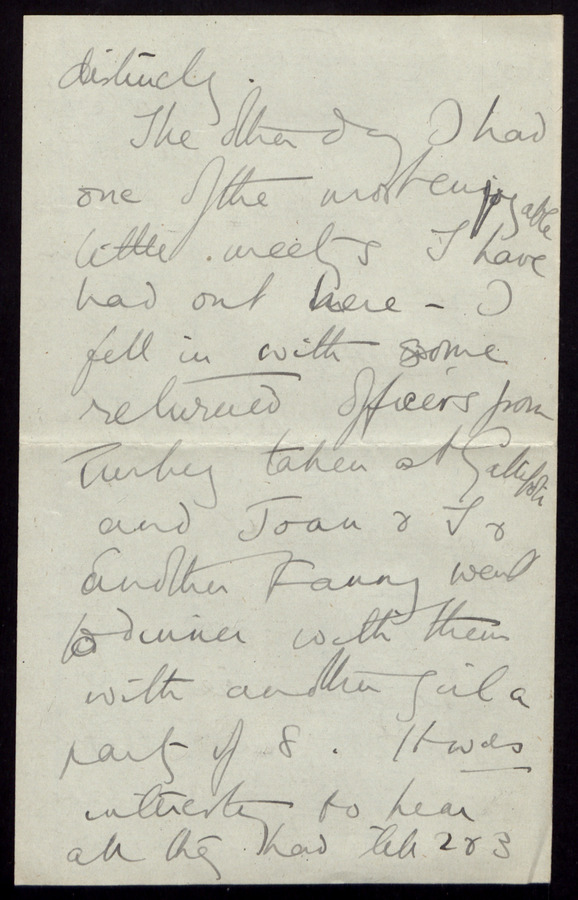 distinctly.
The other day I had
one of the most enjoyable
little meetings I have
had out here - I
fell in with some
returned officers from
Turkey taken at Gallipoli
and Joan & I &
another Fanny went
to dinner with them
with another girl a
party of 8. It was
interesting to hear
all they had tell 2 & 3